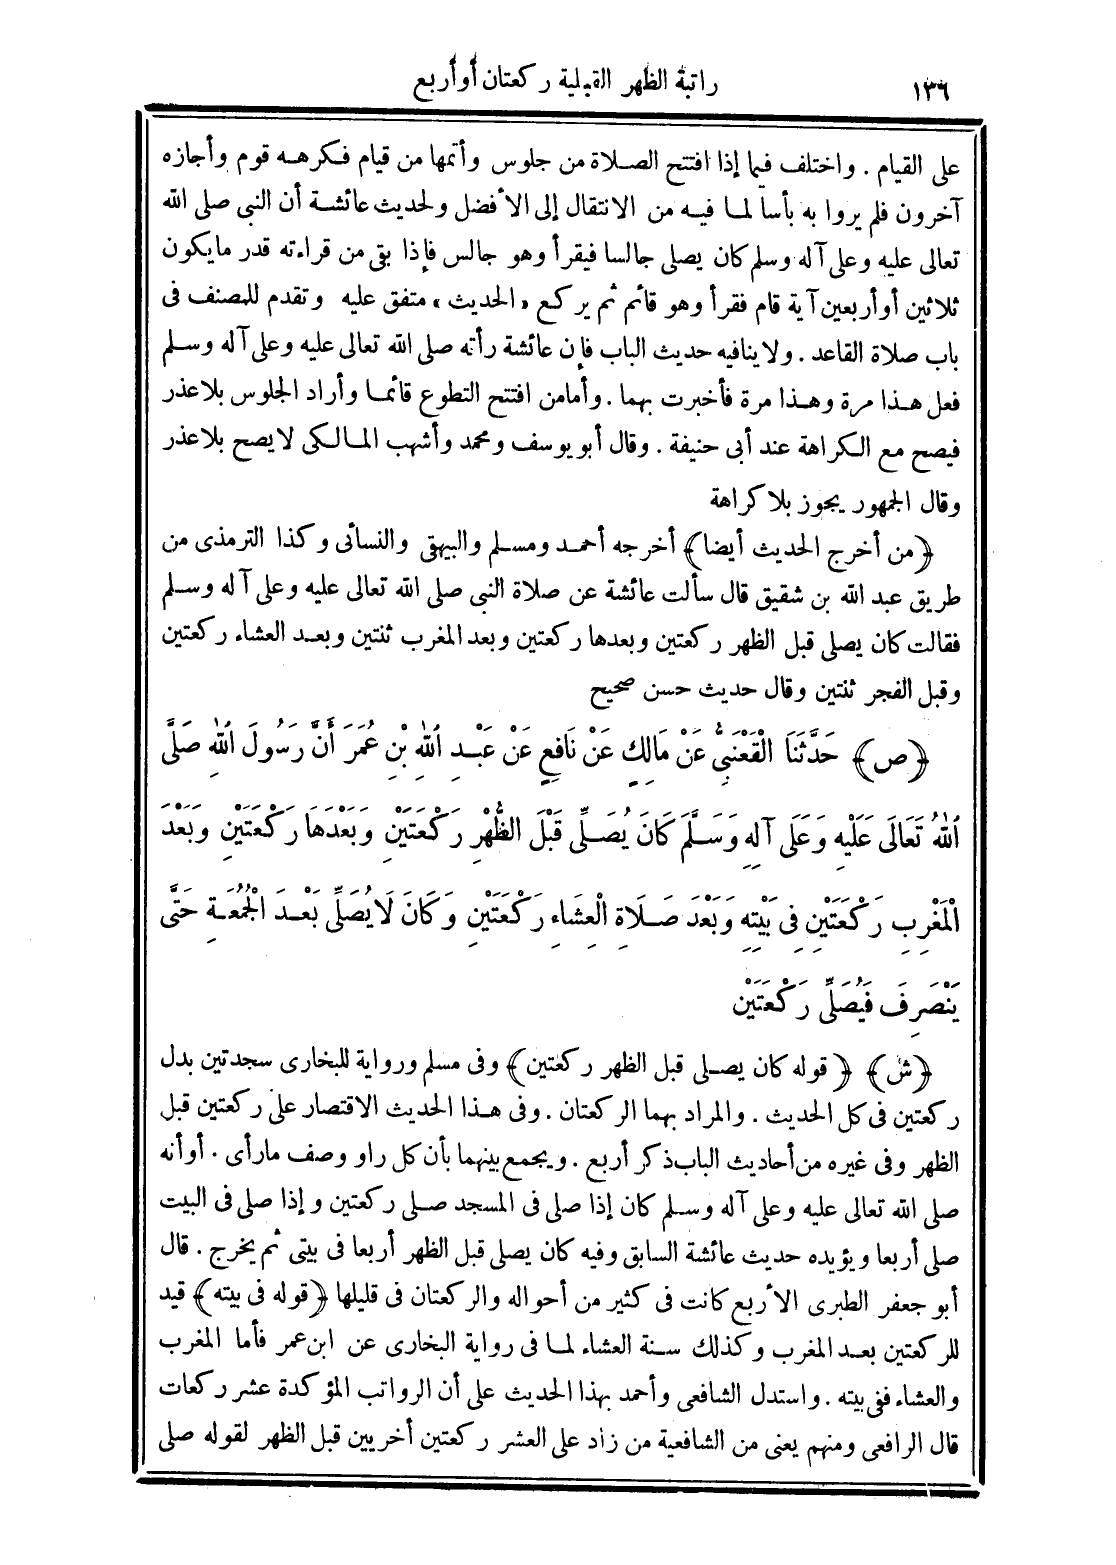 ١٣٦ راتبة الظهر القبلية ركعتان أو أربع
على القيام . واختلف فيما إذا افتتح الصلاة من جلوس وأتمها من قيام فكرهه قوم وأجازه
آخرون فلم يروا به بأسا لما فيه من الانتقال إلى الأفضل ولحديث عائشة أن النبى صلى الله
تعالى عليه وعلى آله وسلم كان يصلى جالسا فيقرأ وهو جالس فإذا بقى من قراءته قدر ما يكون
ثلاثين أو أربعين آية قام فقرأ وهو قائم ثم يركع «الحديث» متفق عليه وتقدم للمصنف فى
باب صلاة القاعد . ولا ينافيه حديث الباب فإن عائشة رأته صلى الله تعالى عليه وعلى آله وسلم
فعل هذا مرة وهذا مرة فأخبرت بهما . وأما من افتتح التطوع قائما وأراد الجلوس بلا عذر
فيصح مع الكراهة عند أبى حنيفة . وقال أبو يوسف ومحمد وأشهب المالكى لا يصح بلا عذر
وقال الجمهور يجوز بلا كراهة
﴿من أخرج الحديث أيضا﴾ أخرجه أحمد ومسلم والبيهقى والنسائى وكذا الترمذى من
طريق عبد الله بن شقيق قال سألت عائشة عن صلاة النبى صلى الله تعالى عليه وعلى آله وسلم
فقالت كان يصلى قبل الظهر ركعتين وبعدها ركعتين وبعد المغرب ثنتين وبعد العشاء ركعتين
وقبل الفجر ثنتين وقال حديث حسن صحيح
﴿ص﴾ حَدَّثَنَا الْقَعْنَبِىُّ عَنْ مَالِكٍ عَنْ نَافِعٍ عَنْ عَبْدِ اللهِ بْنِ عُمَرَ أَنَّ رَسُولَ اللهِ صَلَّى
اللهُ تَعَالَى عَلَيْهِ وَعَلَى آلِهِ وَسَلَّمَ كَانَ يُصَلِّى قَبْلَ الظُّهْرِ رَكْعَتَيْنِ وَبَعْدَهَا رَكْعَتَيْنِ وَبَعْدَ
الْمَغْرِبِ رَكْعَتَيْنِ فِى بَيْتِهِ وَبَعْدَ صَلَاةِ الْعِشَاءِ رَكْعَتَيْنِ وَكَانَ لَا يُصَلِّى بَعْدَ الْجُمُعَةِ حَتَّى
يَنْصَرِفَ فَيُصَلِّى رَكْعَتَيْنِ
﴿ش﴾ ﴿قوله كان يصلى قبل الظهر ركعتين﴾ وفى مسلم ورواية للبخارى سجدتين بدل
ركعتين فى كل الحديث . والمراد بهما الركعتان . وفى هذا الحديث الاقتصار على ركعتين قبل
الظهر وفى غيره من أحاديث الباب ذكر أربع . ويجمع بينهما بأن كل راو وصف ما رأى . أو أنه
صلى الله تعالى عليه وعلى آله وسلم كان إذا صلى فى المسجد صلى ركعتين وإذا صلى فى البيت
صلى أربعا ويؤيده حديث عائشة السابق وفيه كان يصلى قبل الظهر أربعا فى بيتى ثم يخرج . قال
أبو جعفر الطبرى الأربع كانت فى كثير من أحواله والركعتان فى قليلها ﴿قوله فى بيته﴾ قيد
للركعتين بعد المغرب وكذلك سنة العشاء لما فى رواية البخارى عن ابن عمر فأما المغرب
والعشاء ففى بيته . واستدل الشافعى وأحمد بهذا الحديث على أن الرواتب المؤكدة عشر ركعات
قال الرافعى ومنهم يعنى من الشافعية من زاد على العشر ركعتين أخريين قبل الظهر لقوله صلى